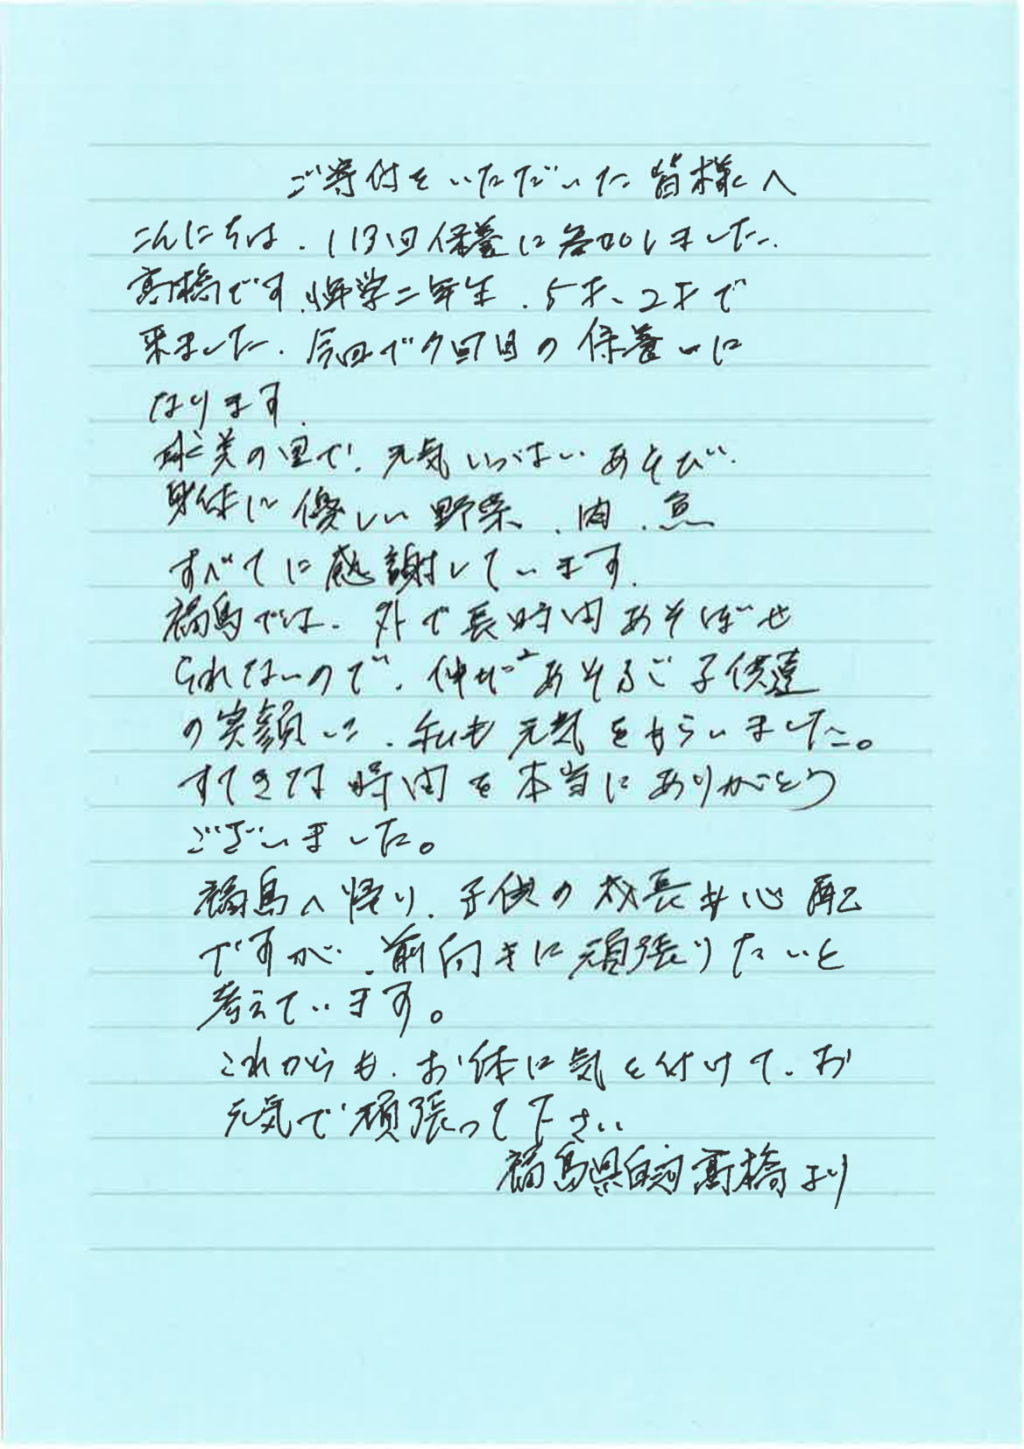 ご寄付をいただいた皆様へ
こんにちは、113回保養に参加しました、
高橋です、小学二年生、5才、2才で
来ました、今回で7回目の保養に
なります、
球美の里で、元気いっぱいあそび、
身体に優しい野菜、肉、魚
すべてに感謝しています、
福島では、外で長時間あそばせ
られないので、伸び〃あそぶ子供達
の笑顔に、私も元気をもらいました。
すてきな時間を本当にありがとう
ございました。
福島へ帰り、子供の成長も心配
ですが、前向きに頑張りたいと
考えています。
これからも、お体に気を付けて、お
元気で頑張って下さい
福島県白河高橋より